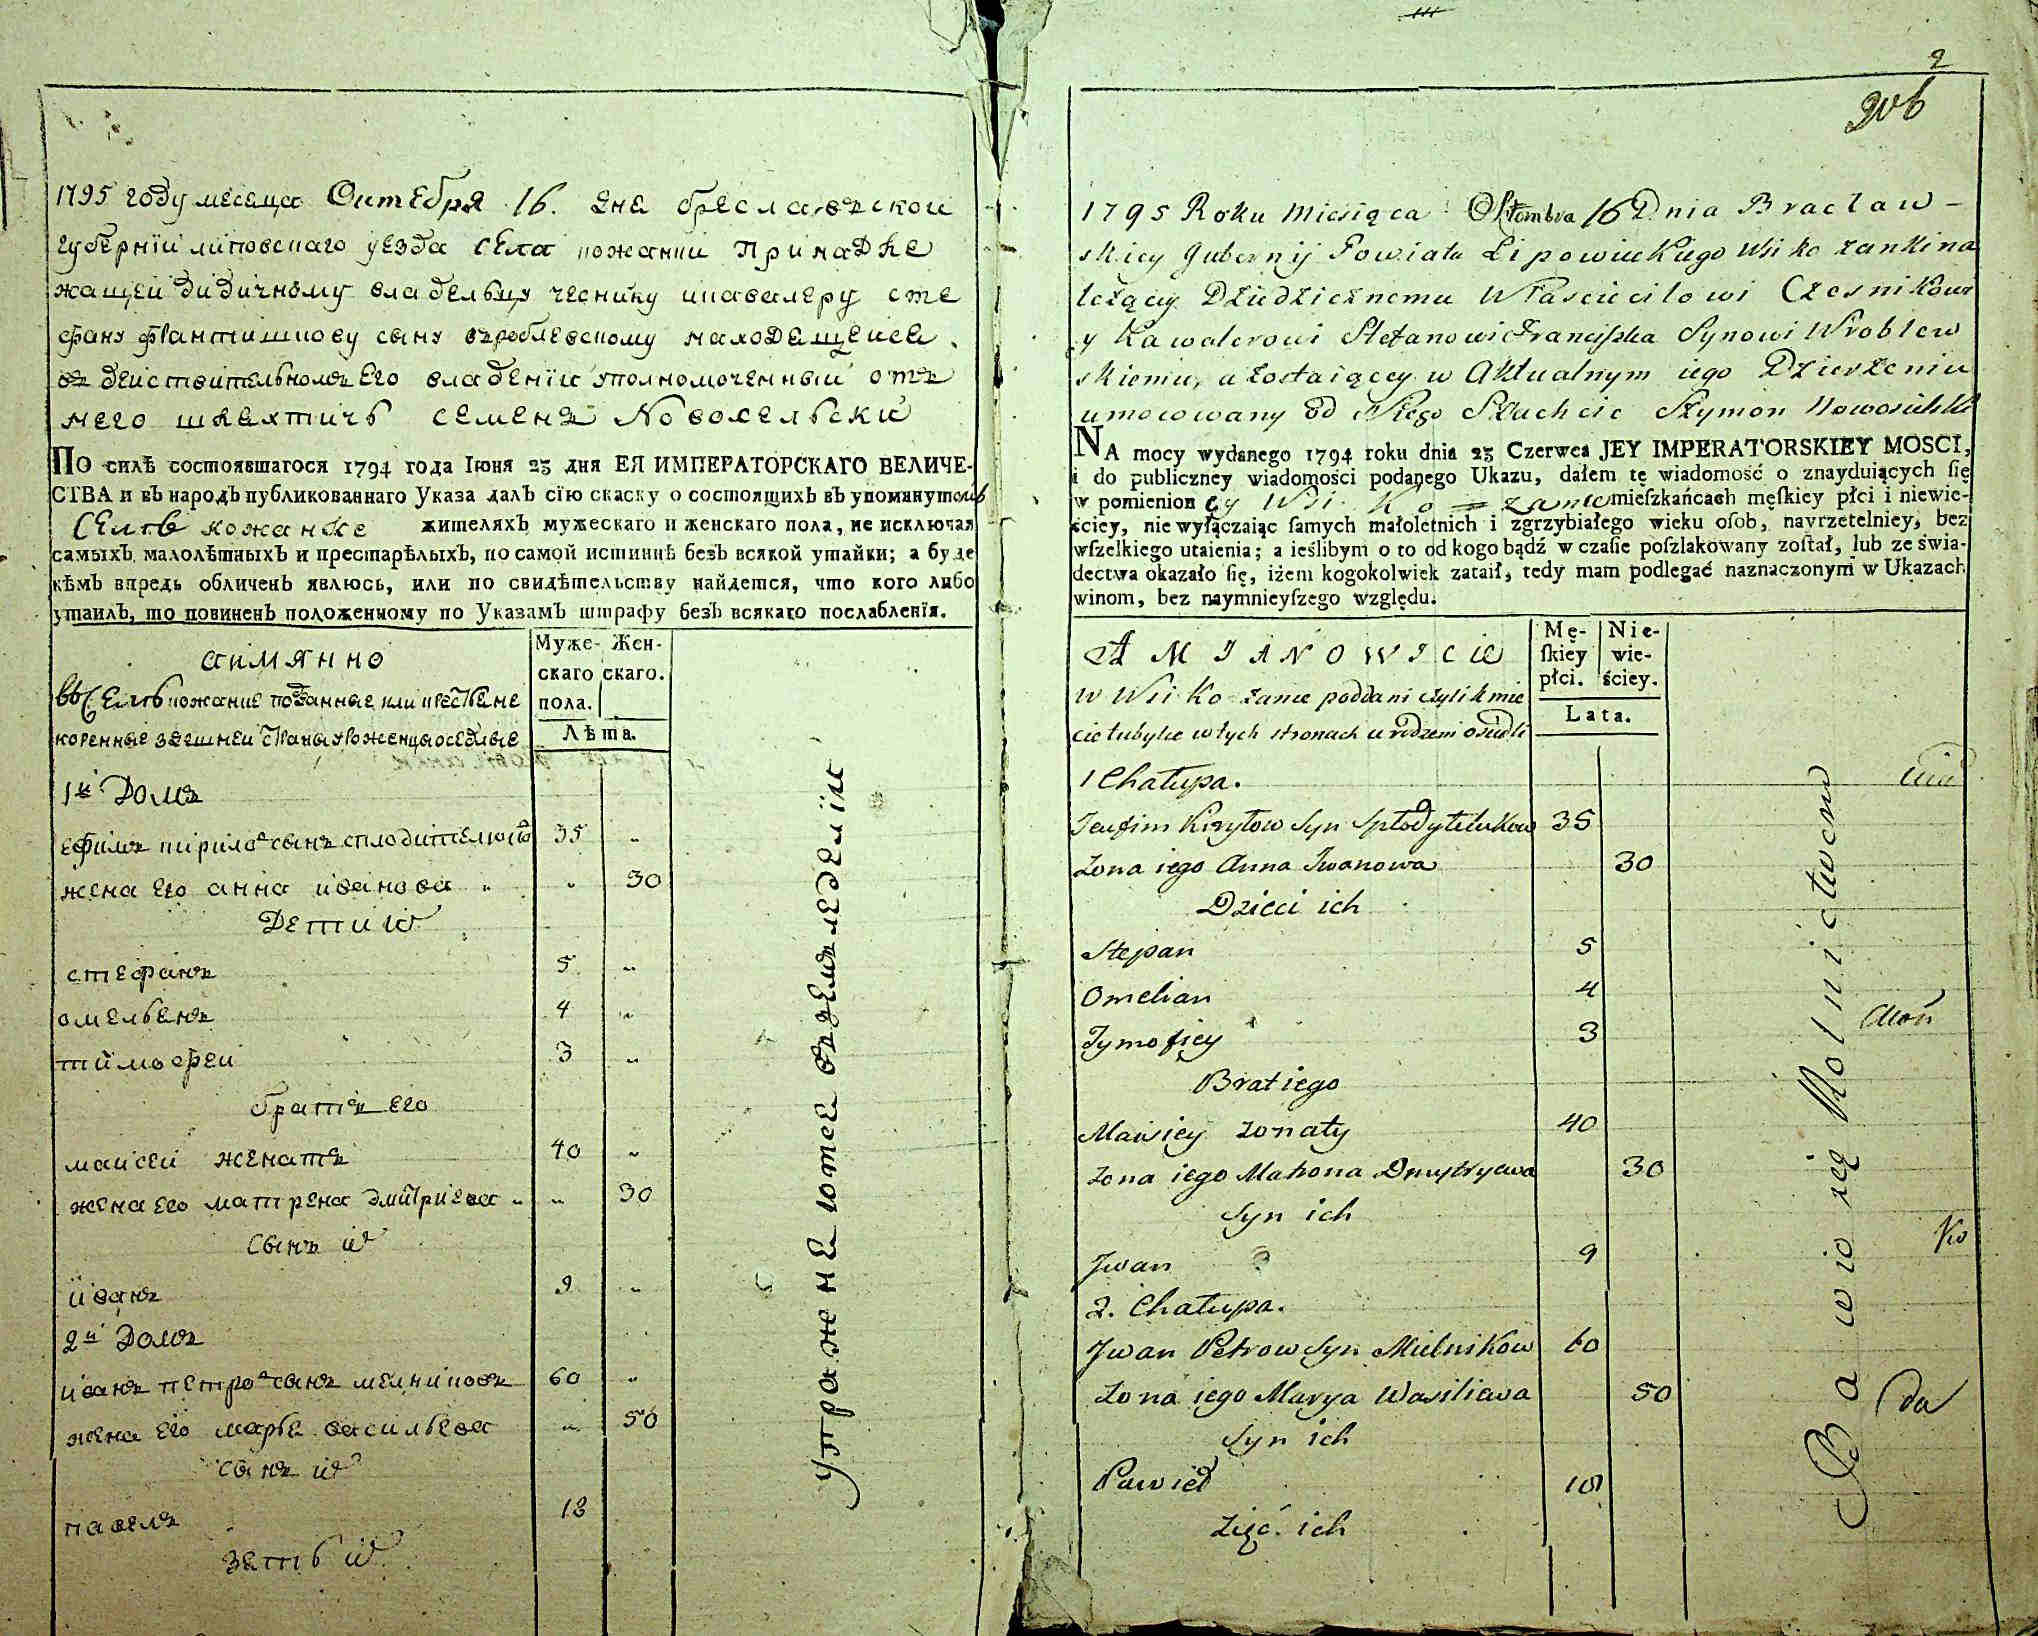 1795 году месеца Октебря 16. дне бреславской
губернїи липовскаго уезда села кожанки принадле
жащей дидичному владельцу чеснику и кавалеру сте
фану францишкову сыну въроблевскому находещейся
въ действительномъ его владенїи уполномоченный отъ
него шляхтичь семенъ Новосельски
По силѣ состоявшагося 1794 года Іюня 23 дня ЕЯ ИМПЕРАТОРСКАГО ВЕЛИЧЕ-
СТВА и въ народъ публикованнаго Указа далъ сїю скаску о состоящихъ въ упомянутомъ
селѣ кожанке жителяхъ мужескаго и женскаго пола, не исключая
самыхъ малолѣтныхъ и престарѣлыхъ, по самой истиннѣ безъ всякой утайки; а буде
кѣмъ впредь обличенъ явлюсь, или по свидѣтельству найдется, что кого либо
утаилъ, то повиненъ положенному по Указамъ штрафу безъ всякаго послабленїя.
аимянно
Муже- Жен-
скаго скаго.
пола.
Лѣта.
въ селѣ кожанке подданные или крестьяне
коренные здешней страны уроженцы оседлые
1й Домъ
ефимъ кирилов сынъ 35 „
жена его анна иванова „ „ 30
Дети их
стефанъ 5 „
омельенъ 4 „
тимофеи 3 „
братъ его
маисеи женатъ 40 „
жена его матрена дмитриева „ „ 30
Сынъ их
иванъ 9 „
2й Домъ
иванъ петров сынъ мелниковъ 60 „
жена его марье васильева „ 50
сынъ их
павелъ 18
зеть их
Упражнеютсе въземледелїи
2
206
1795 Roku Miesiąca Oktembra 16 Dnia Bracław-
skiey Gubernij Powiatu Lipowieckiego Wsi Kożanki na
leżącey Dziedzicznemu Włascicielowi Czesnikowi
y Kawalerowi Stefanowi Franciszka Synowi Wroblew
skiemu, a zostaiącey w Aktualnym iego Dzierżeniu
umocowany od Niego Szlachcic Szymon Nowosielski
NA mocy wydanego 1794 roku dnia 23 Czerwca JEY IMPERATORSKIEY MOSCI,
i do publiczney wiadomości podanego Ukazu, dałem tę wiadomość o znayduiących ſię
w pomienioney Wsi Ko=zance mieſzkańcach męſkiey płci i niewie-
ściey, nie wyłączaiąc ſamych małoletnich i zgrzybiałego wieku oſob, nayrzetelniey, bez
wſzelkiego utaienia; a ieślibym o to od kogo bądź w czaſie poſzlakowany zoſtał, lub ze świa-
dectwa okazało ſię, iżem kogokolwiek zataił, tedy mam podlegać naznaczonym w Ukazach
winom, bez naymnieyſzego względu.
A MIANOWICIE
Mę-
ſkiey
płci.
Nie-
wie-
ściey.
Lata.
w Wsi Kożance poddani czyli kmie
cie tubylce w tych stronach urodzeni osiedli
1 Chałupa.
Jeufim Kiryłow Syn 35
Żona iego Anna Iwanowa 30
Dzieci ich
Stepan 5
Omelian 4
Tymofiey 3
Brat iego
Mawsiey żonaty 40
Żona iego Matrona Dmytryewa 30
Syn ich
Jwan 9
2. Chałupa.
Jwan Petrow Syn Mielnikow 60
Żona iego Marya Wasiliewa 50
Syn ich
Pawieł 18
Zięć ich
Bawio się Rolnictwem
Ko
da